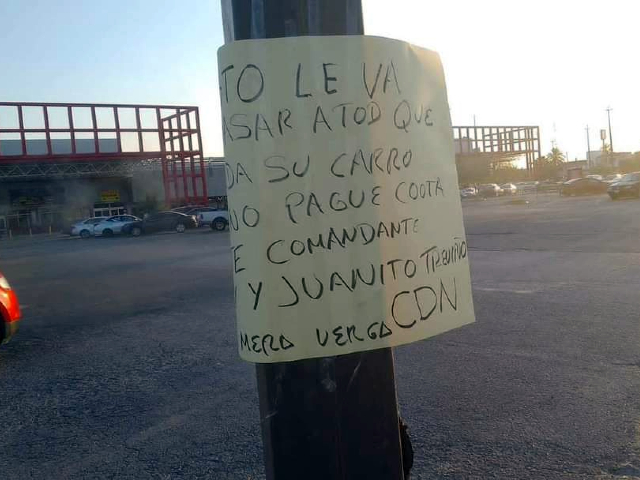 TO LE VA
ASAR ATOD QUE
DA SU CARRO
NO PAGUE COOTA
E COMANDANTE
Y JUANITO TREVIÑO
MERA VERGA CDN